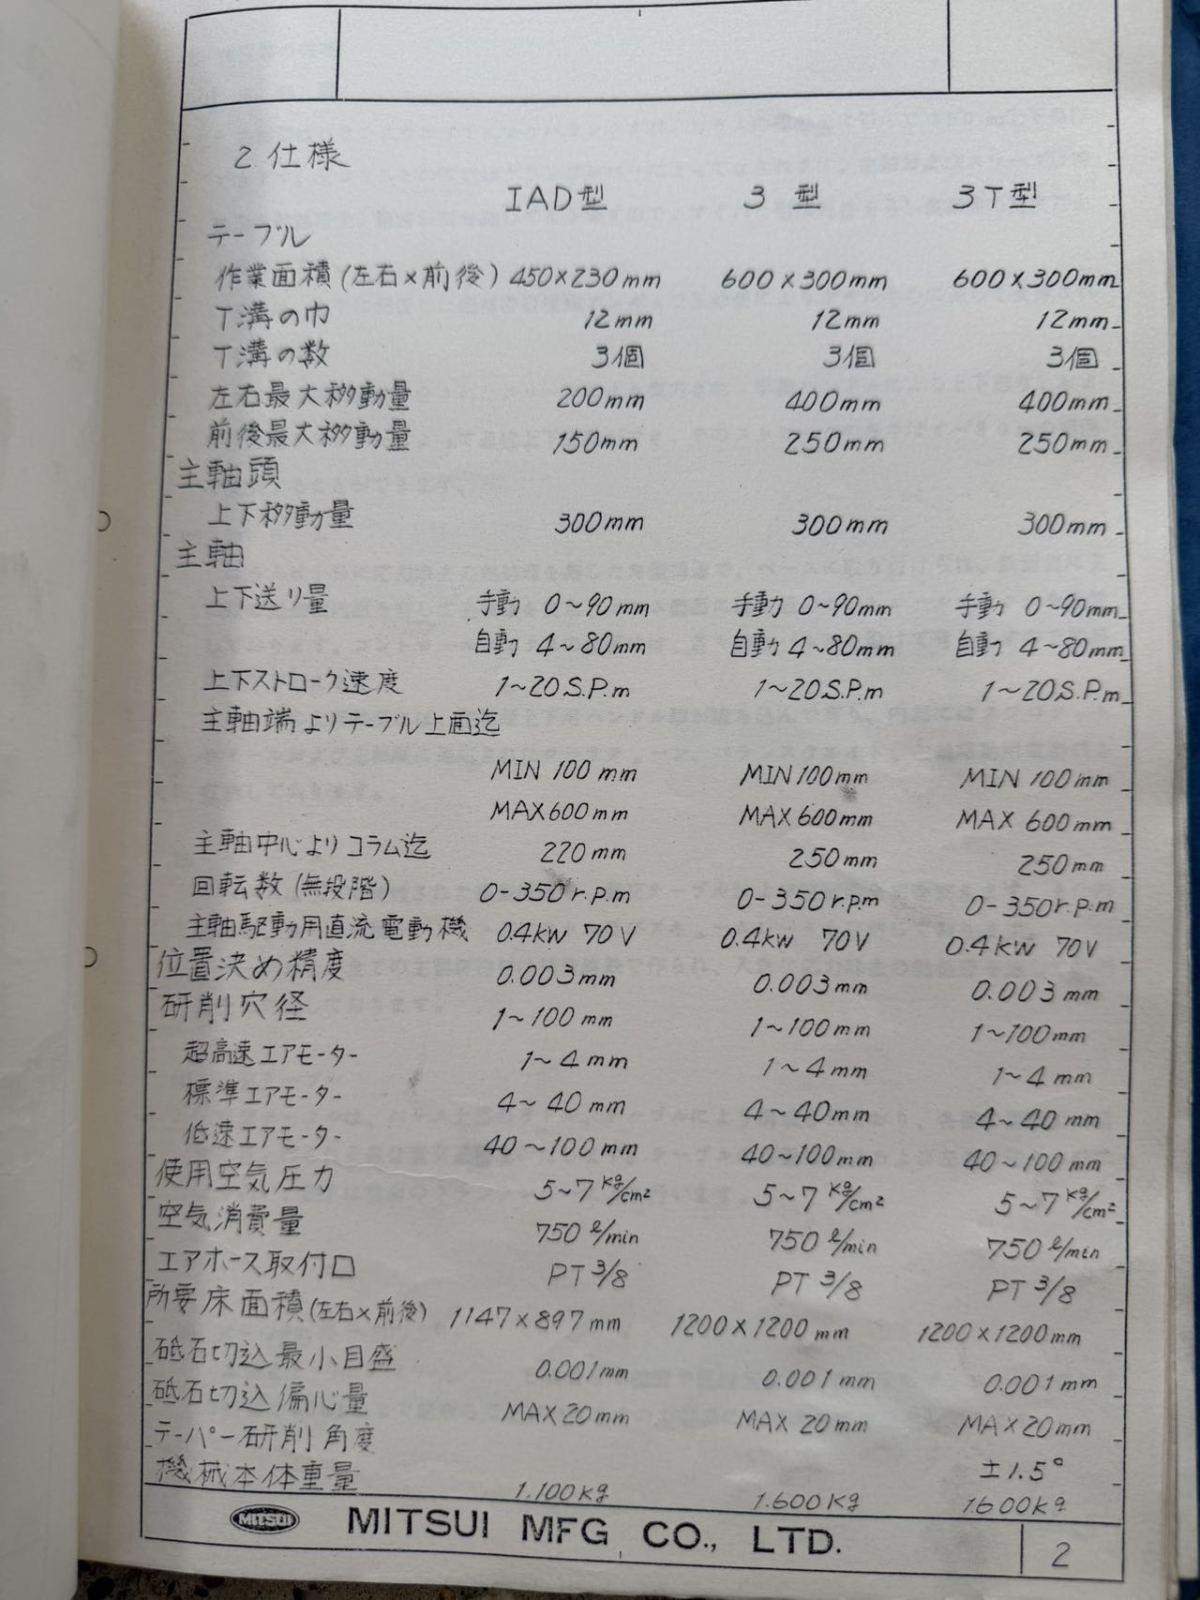 2 仕様
IAD型 3 型 3T型
テーブル
作業面積 (左右×前後) 450×230mm 600×300mm 600×300mm
T溝の巾 12mm 12mm 12mm
T溝の数 3個 3個 3個
左右最大移動量 200mm 400mm 400mm
前後最大移動量 150mm 250mm 250mm
主軸頭
上下移動量 300mm 300mm 300mm
主軸
上下送り量 手動 0~90mm 手動 0~90mm 手動 0~90mm
自動 4~80mm 自動 4~80mm 自動 4~80mm
上下ストローク速度 1~20S.P.m 1~20S.P.m 1~20S.P.m
主軸端よりテーブル上面迄
MIN 100mm MIN 100mm MIN 100mm
MAX 600mm MAX 600mm MAX 600mm
主軸中心よりコラム迄 220mm 250mm 250mm
回転数 (無段階) 0-350r.p.m 0-350r.p.m 0-350r.p.m
主軸駆動用直流電動機 0.4kw 70V 0.4kw 70V 0.4kw 70V
位置決め精度 0.003mm 0.003mm 0.003mm
研削穴径 1~100mm 1~100mm 1~100mm
超高速エアモーター 1~4mm 1~4mm 1~4mm
標準エアモーター 4~40mm 4~40mm 4~40mm
低速エアモーター 40~100mm 40~100mm 40~100mm
使用空気圧力 5~7 kg/cm² 5~7 kg/cm² 5~7 kg/cm²
空気消費量 750 ℓ/min 750 ℓ/min 750 ℓ/min
エアホース取付口 PT 3/8 PT 3/8 PT 3/8
所要床面積 (左右×前後) 1147×897mm 1200×1200mm 1200×1200mm
砥石切込最小目盛 0.001mm 0.001mm 0.001mm
砥石切込偏心量 MAX 20mm MAX 20mm MAX 20mm
テーパー研削角度 ±1.5°
機械本体重量 1.100Kg 1.600Kg 1.600Kg
MITSUI MITSUI MFG CO., LTD. 2